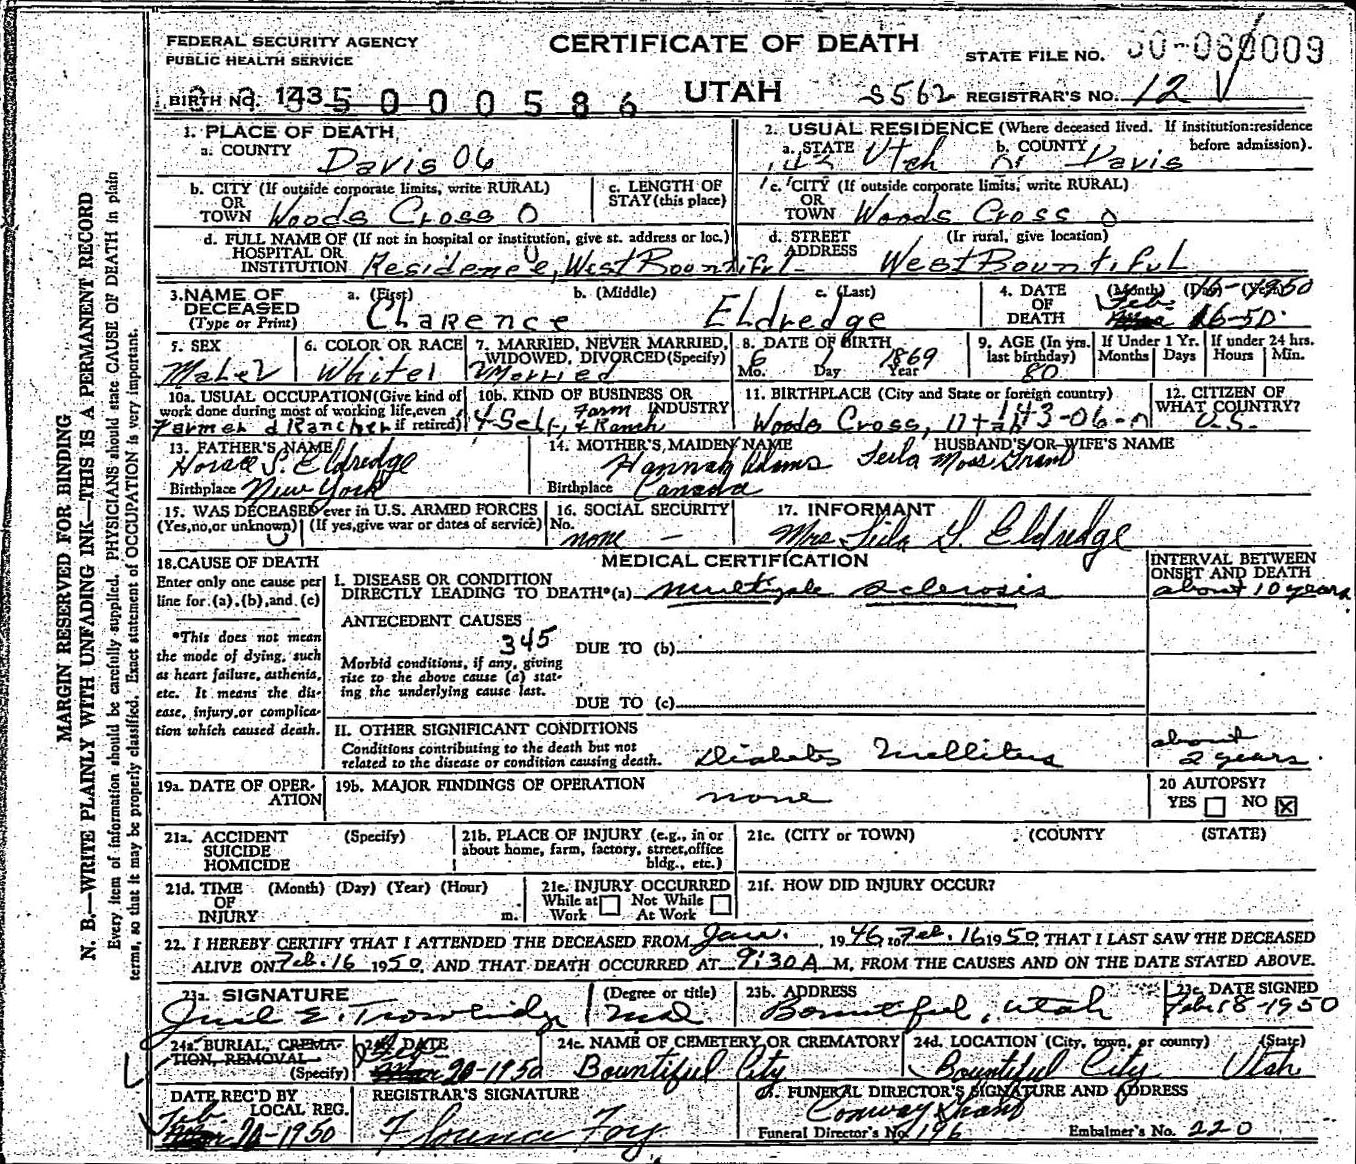 MARGIN RESERVED FOR BINDING
N. B.—WRITE PLAINLY WITH UNFADING INK—THIS IS A PERMANENT RECORD
Every item of information should be carefully supplied. PHYSICIANS should state CAUSE OF DEATH in plain
terms, so that it may be properly classified. Exact statement of OCCUPATION is very important.
FEDERAL SECURITY AGENCY
PUBLIC HEALTH SERVICE
CERTIFICATE OF DEATH
STATE FILE NO.
UTAH
S562
REGISTRAR'S NO. 12
BIRTH NO. 143
1. PLACE OF DEATH
a. COUNTY Davis 06
2. USUAL RESIDENCE (Where deceased lived. If institution:residence
before admission).
a. STATE Utah b. COUNTY Davis
b. CITY (If outside corporate limits, write RURAL)
OR
TOWN Woods Cross 0
c. LENGTH OF
STAY (this place)
c. CITY (If outside corporate limits, write RURAL)
OR
TOWN Woods Cross 0
d. FULL NAME OF (If not in hospital or institution, give st. address or loc.)
HOSPITAL OR
INSTITUTION Residence, West Bountiful
d. STREET (Ir rural, give location)
ADDRESS West Bountiful
3. NAME OF a. (First) b. (Middle) c. (Last)
DECEASED
(Type or Print) Clarence Eldredge
4. DATE (Month) (Day) (Year)
OF
DEATH Feb 16-1950
16-50.
5. SEX
Male
6. COLOR OR RACE
White
7. MARRIED, NEVER MARRIED,
WIDOWED, DIVORCED (Specify)
Married
8. DATE OF BIRTH
6 1 1869
Mo. Day Year
9. AGE (In yrs.
last birthday)
80
If Under 1 Yr.
Months Days
If under 24 hrs.
Hours Min.
10a. USUAL OCCUPATION (Give kind of
work done during most of working life, even
if retired)
Farmer & Rancher
10b. KIND OF BUSINESS OR
INDUSTRY
Self, Farm & Ranch
11. BIRTHPLACE (City and State or foreign country)
Woods Cross, Utah 43-06-0
12. CITIZEN OF
WHAT COUNTRY?
U.S.
13. FATHER'S NAME
Horace S. Eldredge
Birthplace New York
14. MOTHER'S MAIDEN NAME
Hannah Adams
Birthplace Canada
HUSBAND'S OR WIFE'S NAME
Leila Moss Grant
15. WAS DECEASED ever in U.S. ARMED FORCES
(Yes, no, or unknown) (If yes, give war or dates of service)
16. SOCIAL SECURITY
No.
none –
17. INFORMANT
Mrs. Leila G. Eldredge
18. CAUSE OF DEATH
Enter only one cause per
line for (a), (b), and (c)
*This does not mean
the mode of dying, such
as heart failure, asthenia,
etc. It means the dis-
ease, injury, or complica-
tion which caused death.
MEDICAL CERTIFICATION
INTERVAL BETWEEN
ONSET AND DEATH
I. DISEASE OR CONDITION
DIRECTLY LEADING TO DEATH*(a) multiple sclerosis about 10 years
ANTECEDENT CAUSES
345
DUE TO (b)
Morbid conditions, if any, giving
rise to the above cause (a) stat-
ing the underlying cause last.
DUE TO (c)
II. OTHER SIGNIFICANT CONDITIONS
Conditions contributing to the death but not
related to the disease or condition causing death.
Diabetes Mellitus about 2 years.
19a. DATE OF OPER-
ATION
19b. MAJOR FINDINGS OF OPERATION
none
20 AUTOPSY?
YES NO X
21a. ACCIDENT (Specify)
SUICIDE
HOMICIDE
21b. PLACE OF INJURY (e.g., in or
about home, farm, factory, street, office
bldg., etc.)
21c. (CITY or TOWN) (COUNTY) (STATE)
21d. TIME (Month) (Day) (Year) (Hour)
OF
INJURY m.
21e. INJURY OCCURRED
While at Not While
Work At Work
21f. HOW DID INJURY OCCUR?
22. I HEREBY CERTIFY THAT I ATTENDED THE DECEASED FROM Jan. , 1946 to Feb. 16 1950 THAT I LAST SAW THE DECEASED
ALIVE ON Feb. 16 1950, AND THAT DEATH OCCURRED AT 9:30 A M, FROM THE CAUSES AND ON THE DATE STATED ABOVE.
23a. SIGNATURE (Degree or title)
E. Trowbridge M.D.
23b. ADDRESS
Bountiful, Utah
23c. DATE SIGNED
Feb. 18-1950
24a. BURIAL, CREMA-
TION, REMOVAL
(Specify)
24b. DATE
Feb 20-1950
24c. NAME OF CEMETERY OR CREMATORY
Bountiful City
24d. LOCATION (City, town, or county) (State)
Bountiful City Utah
DATE REC'D BY
LOCAL REG.
Feb 20-1950
REGISTRAR'S SIGNATURE
Florence Foy
25. FUNERAL DIRECTOR'S SIGNATURE AND ADDRESS
Conway Grant
Funeral Director's No. 196 Embalmer's No. 220